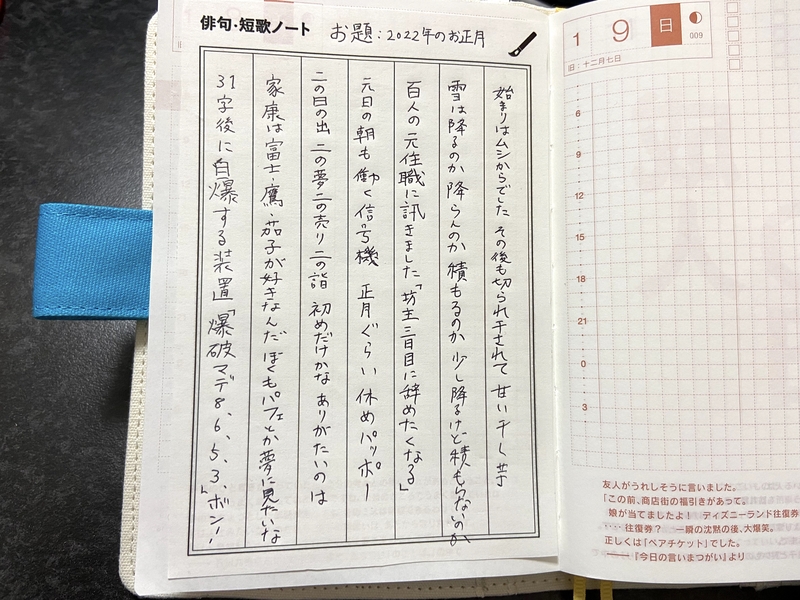 俳句・短歌ノート
お題：2022年のお正月
始まりはムシからでした その後も切られ干されて 甘い干し芋
雪は降るのか 降らんのか 積もるのか 少し降るけど積もらないのか
百人の元住職に訊きました「坊主三日目に辞めたくなる」
元日の朝も働く信号機 正月ぐらい休めパッポー
二の日の出 二の夢二の売り二の詣 初めだけかな ありがたいのは
家康は富士・鷹・茄子が好きなんだ ぼくもパフェとか夢に見たいな
31字後に自爆する装置「爆破マデ8、6、5、3、ボン!」
1 9 日
009
旧：十二月七日
6
9
12
15
18
21
0
3
友人がうれしそうに言いました。
「この前、商店街の福引きがあって、
娘が当てましたよ！ ディズニーランド往復券
‥‥往復券？ 一瞬の沈黙の後、大爆笑。
正しくは「ペアチケット」でした。
――『今日の言いまつがい』より